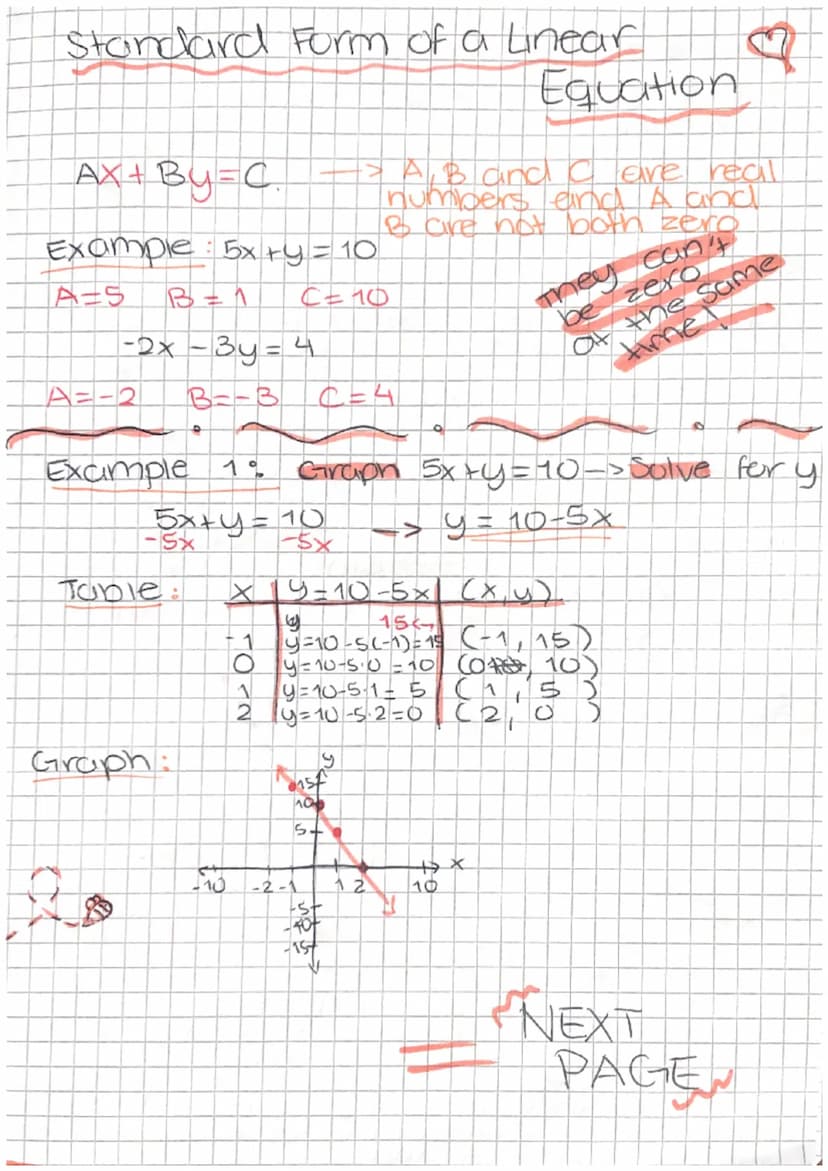 Standard Form of a Linear
Equation
Ax + By = C. —> A, B and C are real
numbers and A and
B are not both zero
Example: 5x + y = 10
They can't
be zero
at the same
time!
A=5 B=1 C=10
-2x - 3y = 4
A=-2 B=-3 C=4
Example 1: Graph 5x+y=10 —> Solve for y
5x+y = 10 —> y = 10-5x
-5x -5x
Table: x y=10-5x (x,y)
y 15<
-1 y=10-5(-1)=15 (-1, 15)
0 y=10-5·0=10 (0, 10)
1 y=10-5·1=5 (1, 5)
2 y=10-5·2=0 (2, 0)
Graph:
y
15
10
5
x
-10 -2 -1 1 2 10
-5
-10
-15
NEXT
PAGE